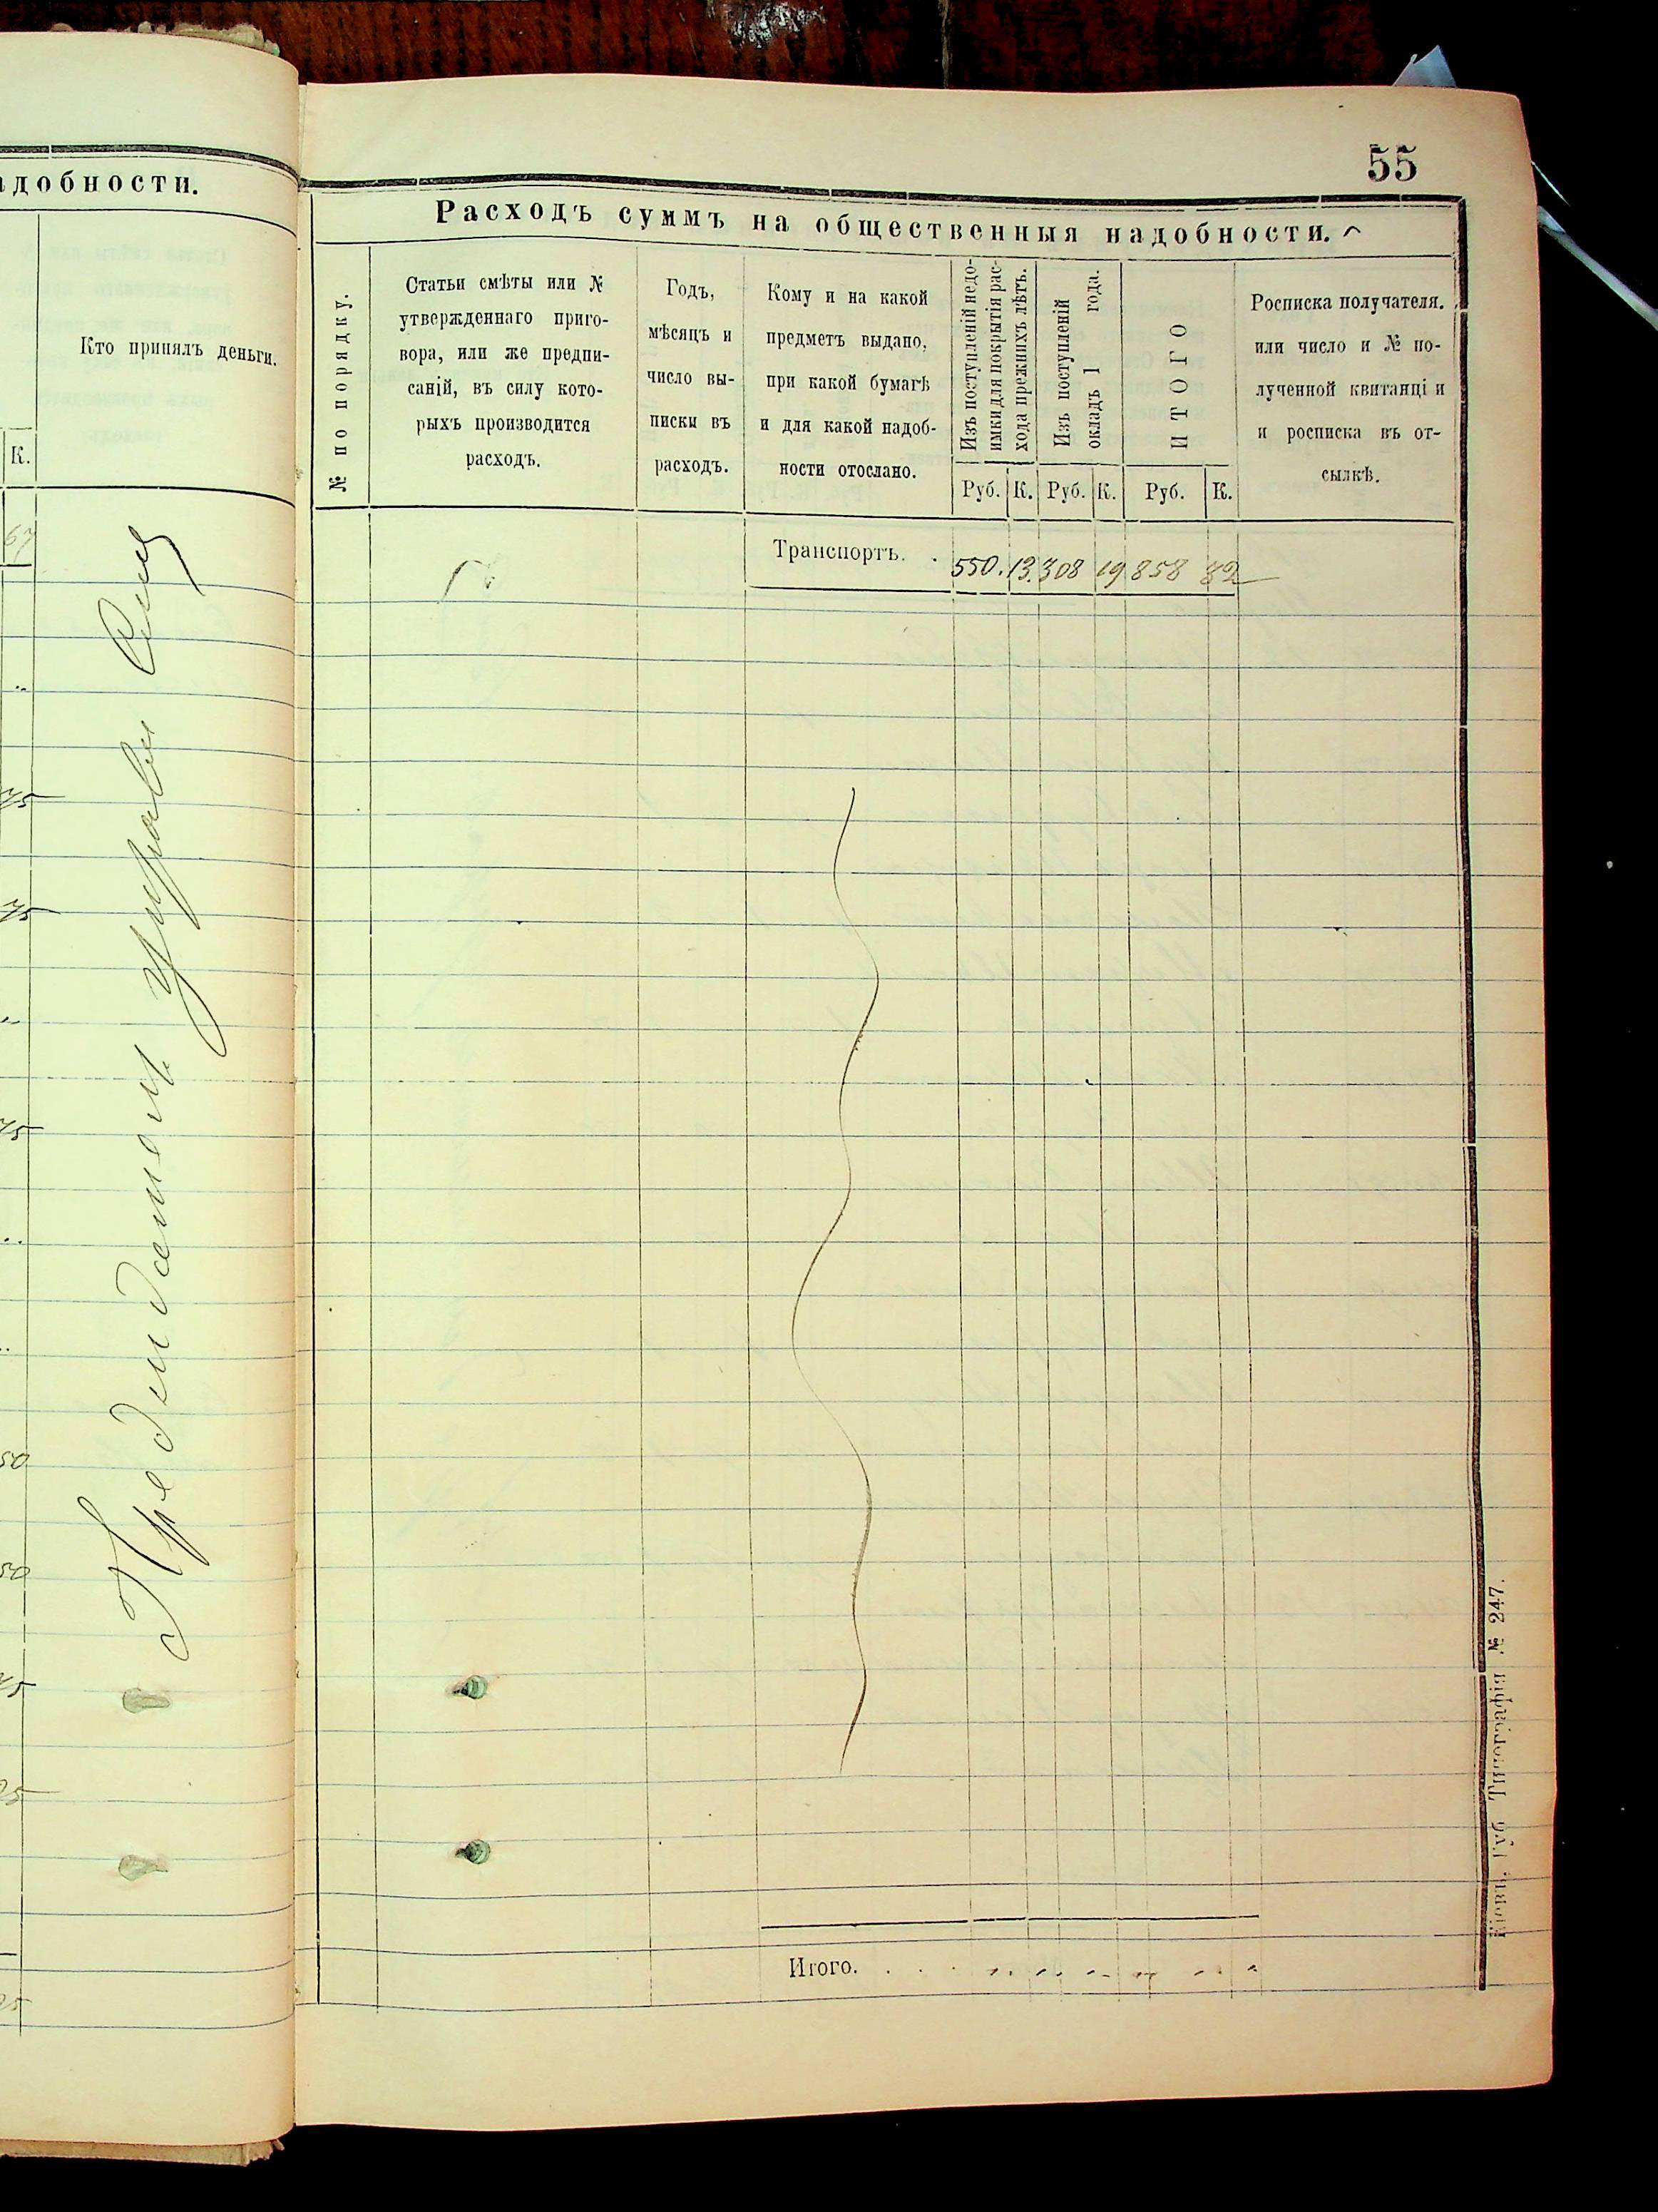 адобности.
Кто принялъ деньги.
К.
67
75
75
75
50
50
45
25
25
55
Расходъ суммъ на общественныя надобности.
№ по порядку.
Статьи смѣты или №
утвержденнаго приго-
вора, или же предпи-
саній, въ силу кото-
рыхъ производится
расходъ.
Годъ,
мѣсяцъ и
число вы-
писки въ
расходъ.
Кому и на какой
предметъ выдано,
при какой бумагѣ
и для какой надоб-
ности отослано.
Изъ поступленій недо-
имки для покрытія рас-
хода прежнихъ лѣтъ.
Изъ поступленій
окладъ 1 года.
ИТОГО
Росписка получателя.
или число и № по-
лученной квитанціи
и росписка въ от-
сылкѣ.
Руб. К. Руб. К. Руб. К.
Транспортъ. . 550. 13. 308 19 858 82
Итого. . . .
Кіевъ. Губ. Типографія № 247.